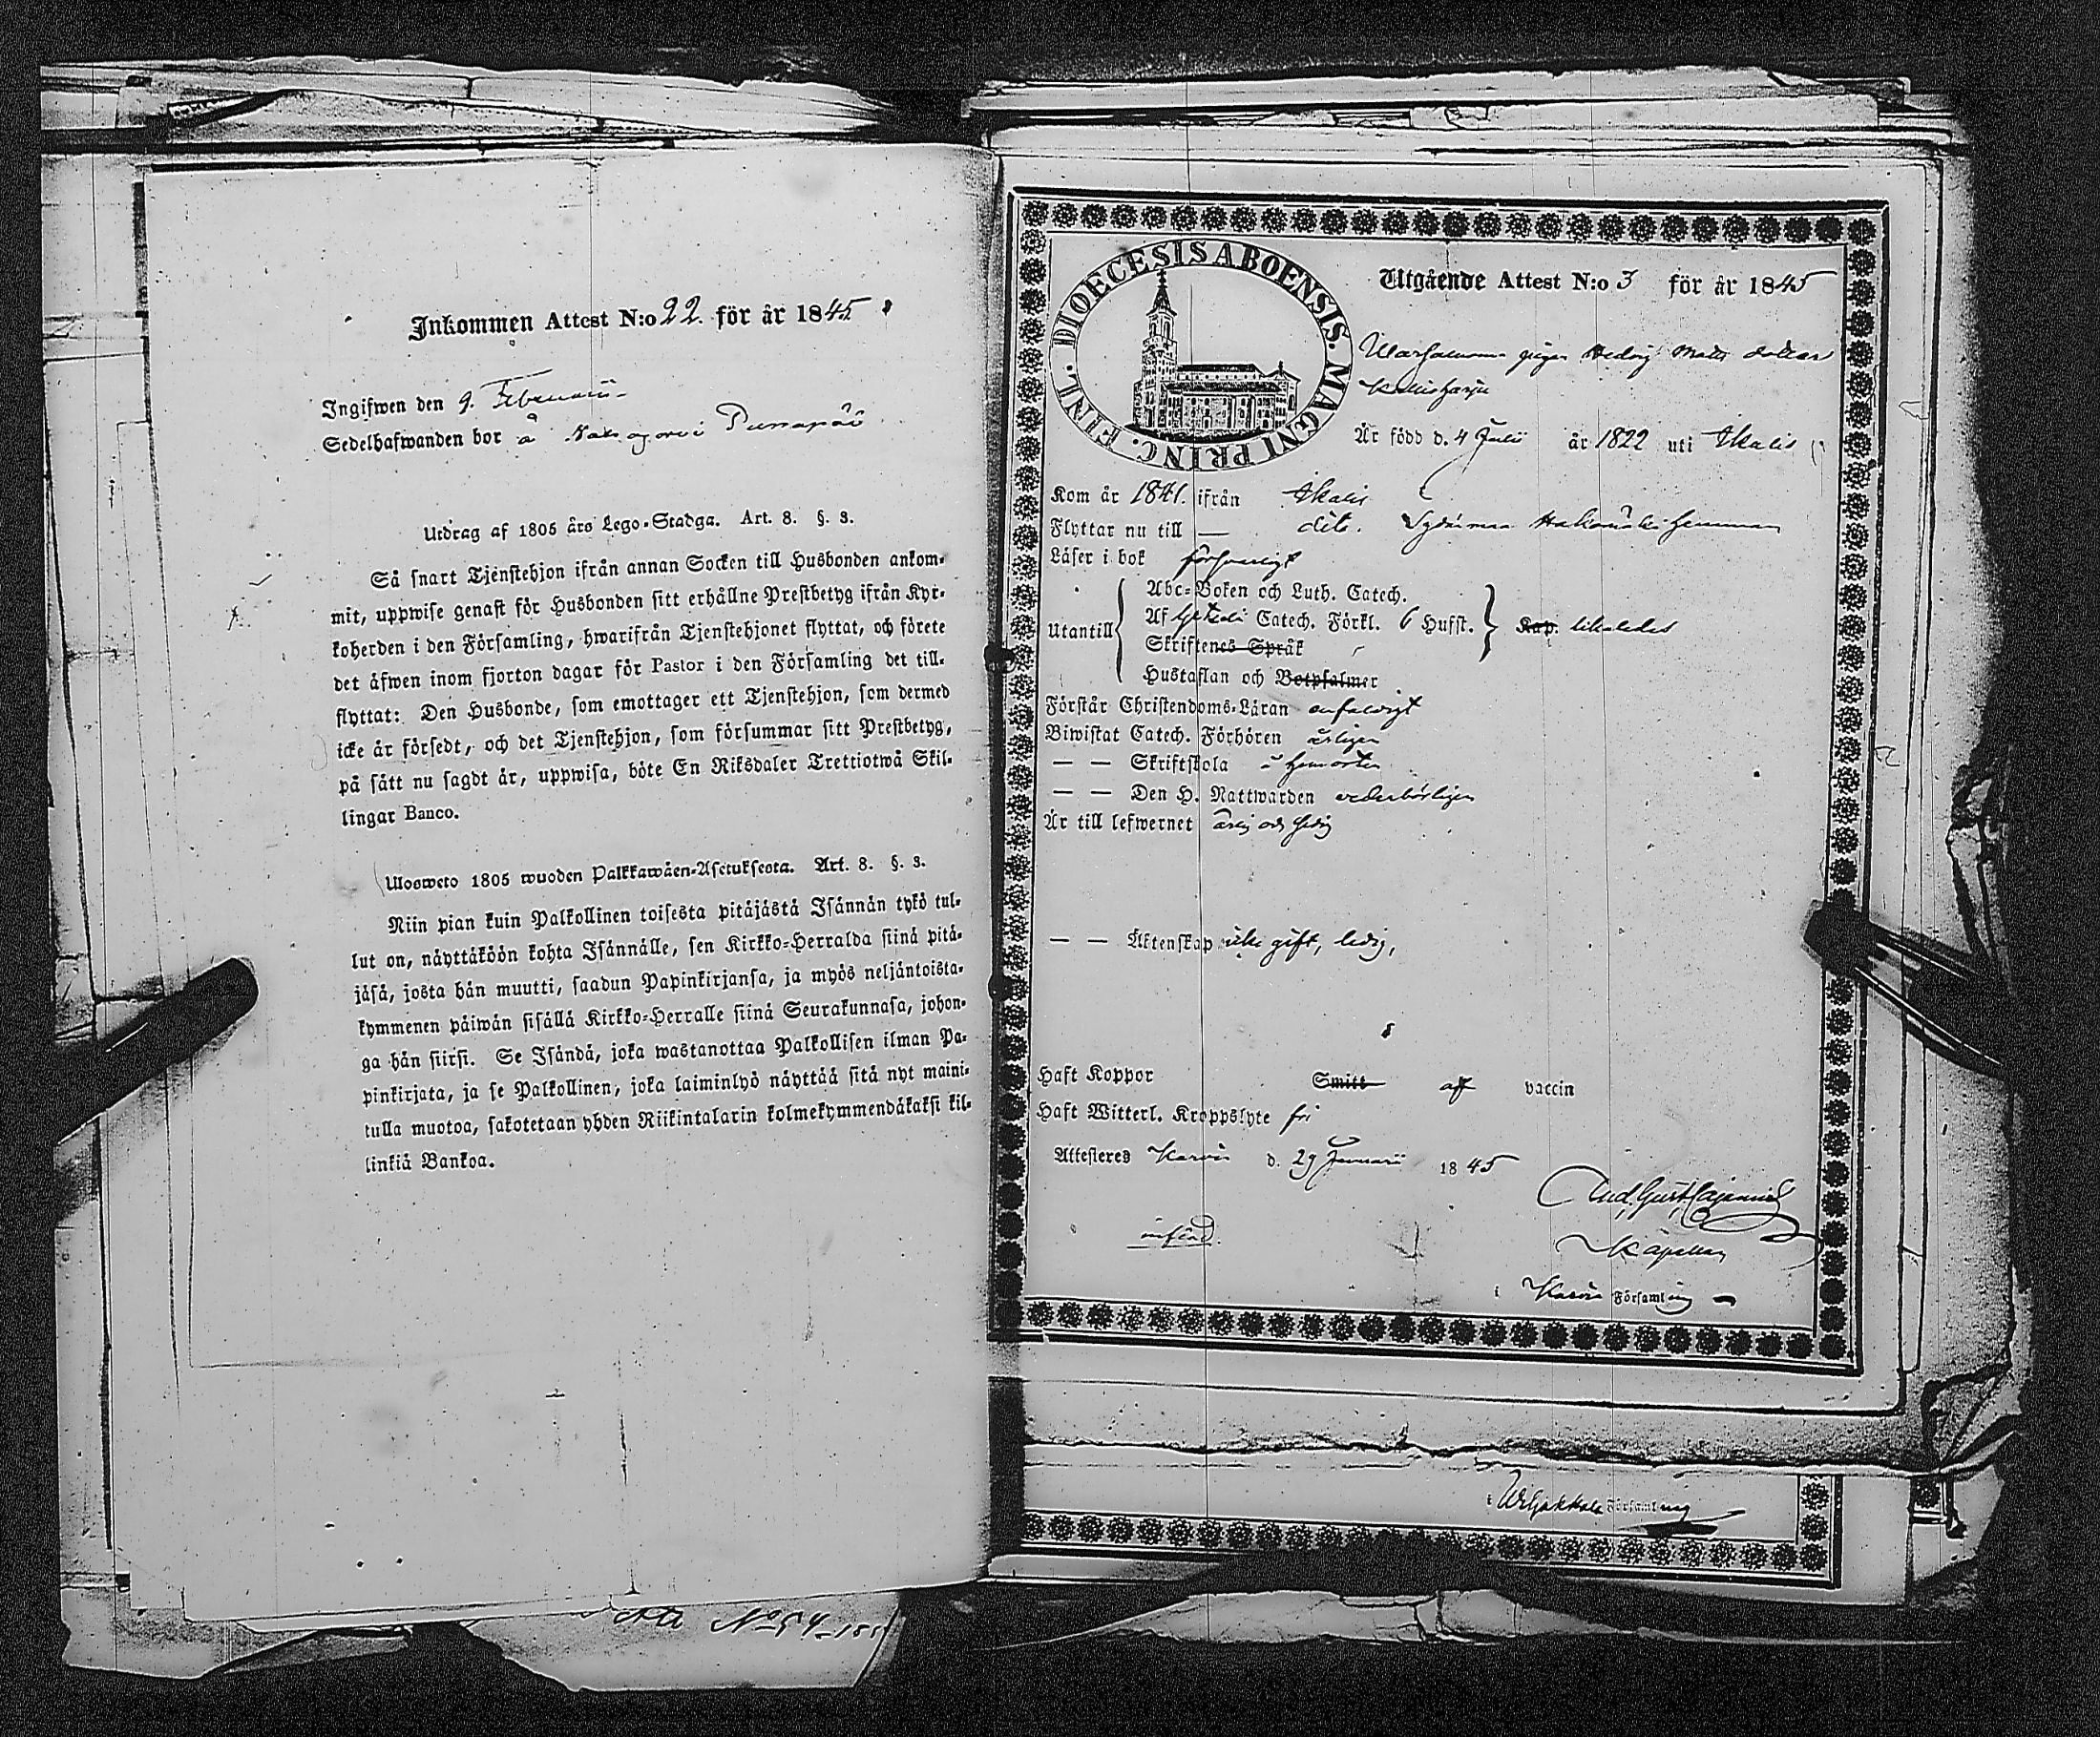 Inkommen Attest N:o 22. för år 1845
Ingifwen den 9. Februarii
Sedelhafwanden bor å
Utdrag af 1805 års Lego-Stadga. Art. 8. §. 3.
Så snart Tjenstehjon ifrån annan Socken till Husbonden ankom-
mit, uppwise genast för Husbonden sitt erhållne Prestbetyg ifrån Kyr-
koherden i den Församling, hwarifrån Tjenstehjonet flyttat, och förete
det äfwen inom fjorton dagar för Pastor i den Församling det till-
flyttat: Den Husbonde, som emottager ett Tjenstehjon, som dermed
icke är försedt, och det Tjenstehjon, som försummar sitt Prestbetyg,
på sätt nu sagdt är, uppwisa, böte En Riksdaler Trettiotwå Skil-
lingar Banco.
Ulosweto 1805 wuoden Palkkawäen-Asetuksesta. Art. 8. §. 3.
Niin pian kuin Palkollinen toisesta pitäjästä Isännän tykö tul-
lut on, näyttäköön kohta Isännälle, sen Kirkko-Herralda siinä pitä-
jäsä, josta hän muutti, saadun Papinkirjansa, ja myös neljäntoista-
kymmenen päiwän sisällä Kirkko-Herralle siinä Seurakunnasa, johon-
ga hän siirsi. Se Isändä, joka wastanottaa Palkollisen ilman Pa-
pinkirjata, ja se Palkollinen, joka laiminlyö näyttää sitä nyt maini-
tulla muotoa, sakotetaan yhden Riikintalarin kolmekymmendäkaksi kil-
linkiä Bankoa.
N:o 54
DIOECESIS ABOENSIS. MAGNI PRINC. FINL.
Utgående Attest N:o 3 för år 1845
pigan Hedvig Matts dotter
Är född d. 4 Julii år 1822 uti Ikalis
Kom år 1841. ifrån Ikalis
Flyttar nu till — dito. hemman
Läser i bok försvarligt
Utantill
Abc-Boken och Luth. Catech.
Af Catech. Förkl. 6 Husst. Kap. likaledes
Skriftenes Språk
Hustaflan och Botpsalmer
Förstår Christendoms-Läran enfaldigt
Biwistat Catech. Förhören årligen
— — Skriftskola å hemorten
— — Den H. Nattwarden vederbörligen
Är till lefwernet ärlig och fredig
— — Äktenskap icke gift, ledig,
Haft Koppor Smitt af vaccin
Haft Witterl. Kroppslyte fri
Attesteras Karvia d. 29 Januarii 1845
And. Gust. Cajanus
Kapellan
införd.
i Karvia Församling
i Församling